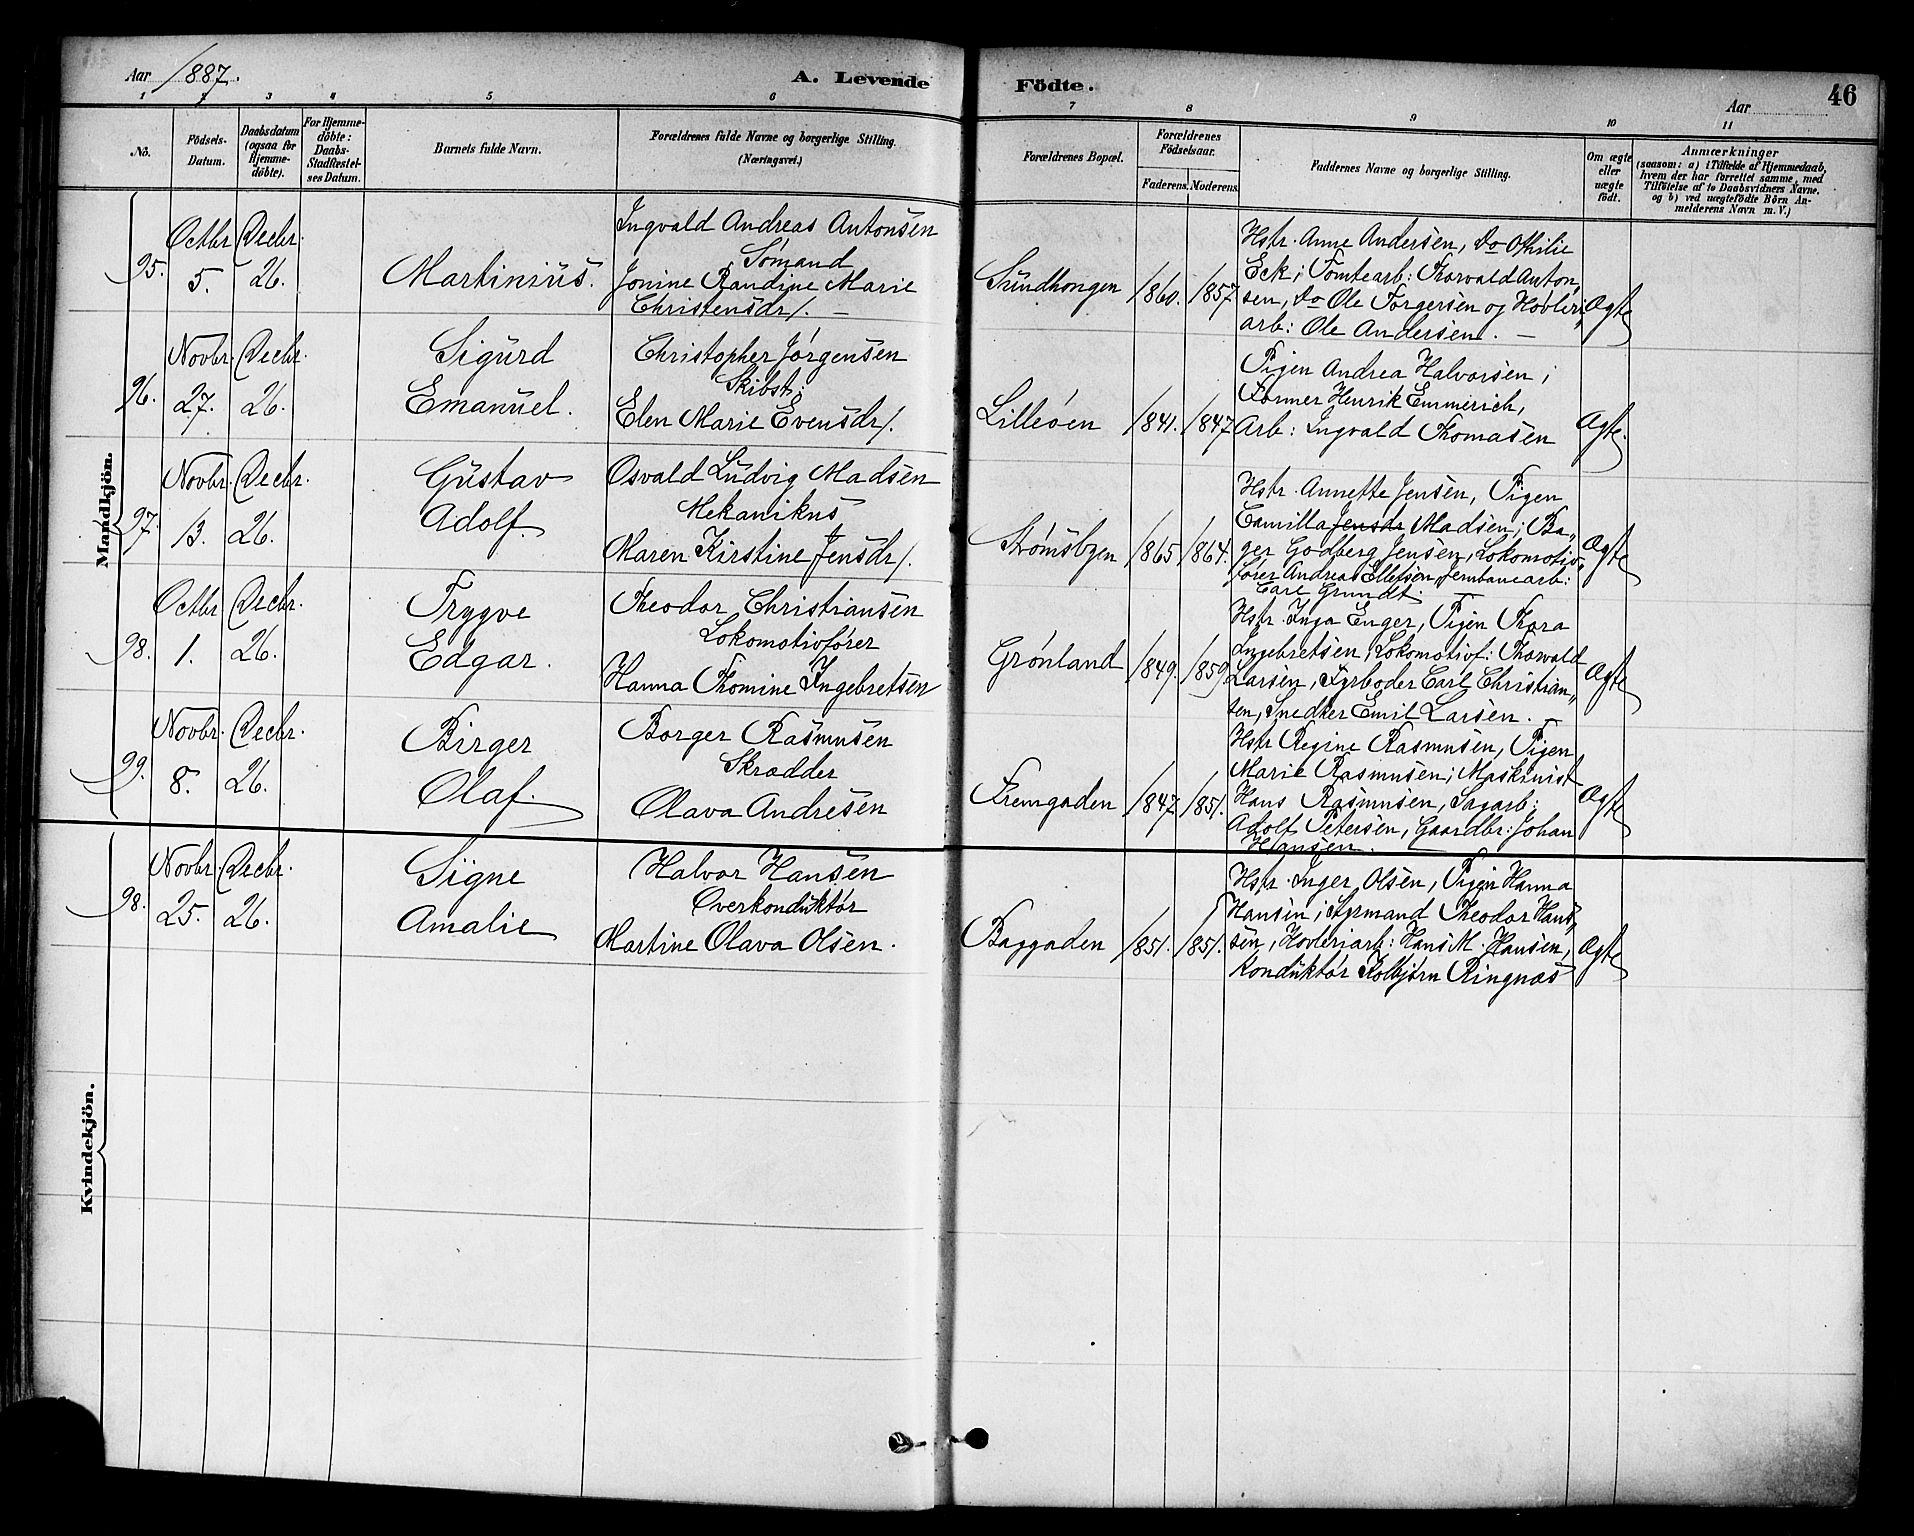 Aar 1887.
A. Levende
Födte.
Aar
46
1 2 3 4 5 6 7 8 9 10 11
No.
Födsels-
Datum.
Daabsdatum
(ogsaa for
Hjemme-
döbte).
For Hjemme-
döbte:
Daabs-
Stadfæstel-
ses Datum.
Barnets fulde Navn.
Forældrenes fulde Navne og borgerlige Stilling.
(Næringsvei.)
Forældrenes Bopæl.
Forældrenes
Födselsaar.
Faderens. Moderens.
Faddernes Navne og borgerlige Stilling.
Om ægte
eller
uægte
født.
Anmærkninger
(saasom: a) i Tilfælde af Hjemmedaab,
hvem der har forrettet samme, med
Tilföielse af to Daabsvidners Navne,
og b) ved uægtefödte Börn An-
melderens Navn m. V.)
Mandkjön.
95.
Octbr
5.
Decbr.
26.
Martinius.
Ingvald Andreas Antonsen
Sømand
Jonine Randine Marie
Christensdr/. —
1860.
1857
Hstr. Anne Andersen, Do Othilie
Eck; Tomtearb: Thorvald Anton,,
sen, Do Ole Torgersen og Høvleri,,
arb: Ole Andersen. —
Ægte
96.
Novbr.
27.
Decbr.
26.
Sigurd
Emanuel.
Christopher Jørgensen
Skibst:
Elen Marie Evensdr/.
Lilleøen
1841.
1847
Pigen Andrea Halvorsen;
Former Henrik Emmerich,
Arb: Ingvald Thomasen
Ægte.
97.
Novbr.
13.
Decbr.
26.
Gustav
Adolf.
Osvald Ludvig Madsen
Mekanikus
Maren Kirstine Jensdr/.
Strømsbyen
1865
1864.
Hstr. Annette Jensen, Pigen
Camilla Jensdr Madsen; Ba,,
ger Godberg Jensen, Lokomotiv,,
fører Andreas Ellefsen, Jernbanearb:
Carl Grundt. —
Ægte
98.
Octbr
1.
Decbr.
26.
Trygve
Edgar.
Theodor Christiansen
Lokomotivfører
Hanna Thomine Ingebretsen
Grønland
1849.
1859
Hstr. Inga Enger, Pigen Thora
Ingebretsen; Lokomotivf: Thorvald
Larsen, Fyrbøder Carl Christian,,
sen, Snedker Emil Larsen.
Ægte
99.
Novbr.
8.
Decbr.
26.
Birger
Olaf.
Borger Rasmusen
Skrædder
Olava Andresen
Fremgaden
1847
1851.
Hstr Regine Rasmusen, Pigen
Marie Rasmusen; Maskinist
Hans Rasmusen, Sagarb:
Adolf Petersen, Gaardbr: Johan
Hansen.
Ægte
Kvindekjön.
98.
Novbr.
25.
Decbr.
26.
Signe
Amalie
Halvor Hansen
Overkonduktør
Martine Olava Olsen.
Baggaden
1851.
1851.
Hstr. Inger Olsen, Pigen Hanna
Hansen; Styrmand Theodor Han,,
sen, Høvleriarb: Hans M. Hansen,
Konduktør Kolbjørn Ringnæs
Ægte